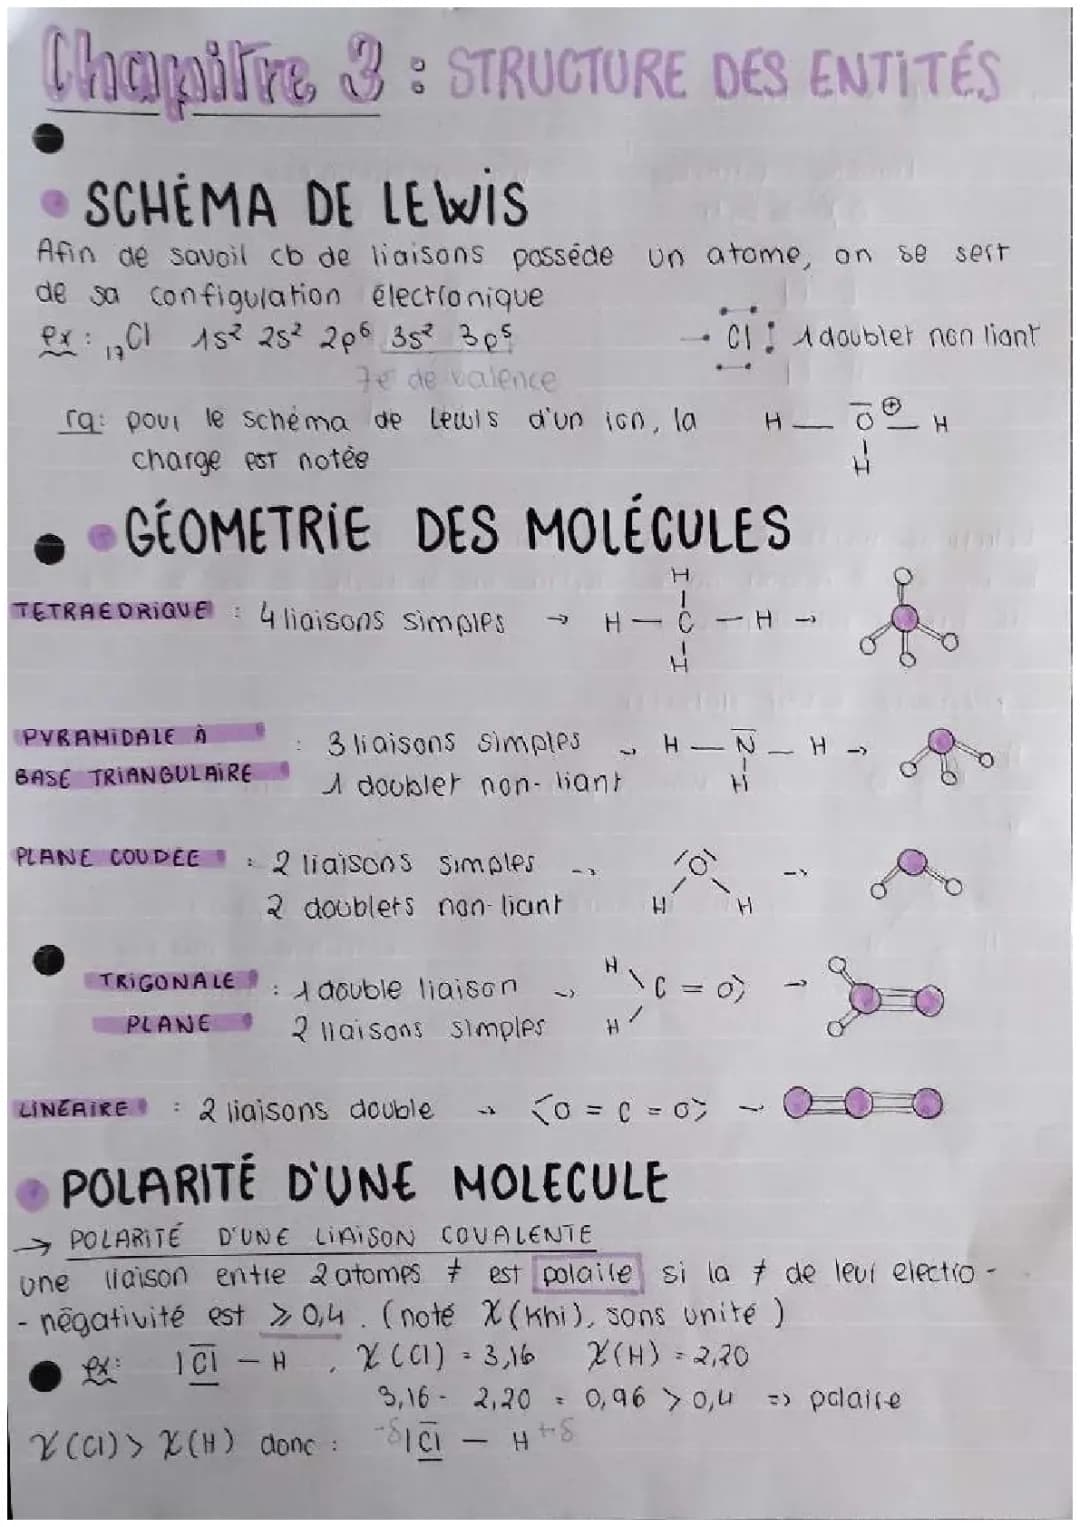 Chapitre 3 : STRUCTURE DES ENTITÉS
• SCHÉMA DE LEWIS
Afin de savoir cb de liaisons posséde un atome, on se sert
de sa configuration électronique
ex : ₁₇Cl 1s² 2s² 2p⁶ 3s² 3p⁵ → Cl 1 doublet non liant
7e⁻ de valence
rq: pour le schéma de Lewis d'un ion, la H — O⊕ — H
charge est notée H
• GÉOMETRIE DES MOLÉCULES
H
TETRAEDRIQUE : 4 liaisons simples → H — C — H →
H
PYRAMIDALE À : 3 liaisons simples → H — N — H →
BASE TRIANGULAIRE 1 doublet non-liant H
PLANE COUDÉE : 2 liaisons simples → O →
2 doublets non-liant H H
TRIGONALE : 1 double liaison → H \ C = O⟩ →
PLANE 2 liaisons simples H /
LINÉAIRE : 2 liaisons double → ⟨O = C = O⟩ →
• POLARITÉ D'UNE MOLECULE
→ POLARITÉ D'UNE LIAISON COVALENTE
une liaison entre 2 atomes ≠ est polaire si la ≠ de leur electro-
- négativité est ⩾ 0,4. (noté χ (khi), sans unité)
ex: |Cl — H , χ(Cl) = 3,16 χ(H) = 2,20
3,16 - 2,20 = 0,96 > 0,4 => polaire
χ(Cl) > χ(H) donc : -δ|Cl — H +δ